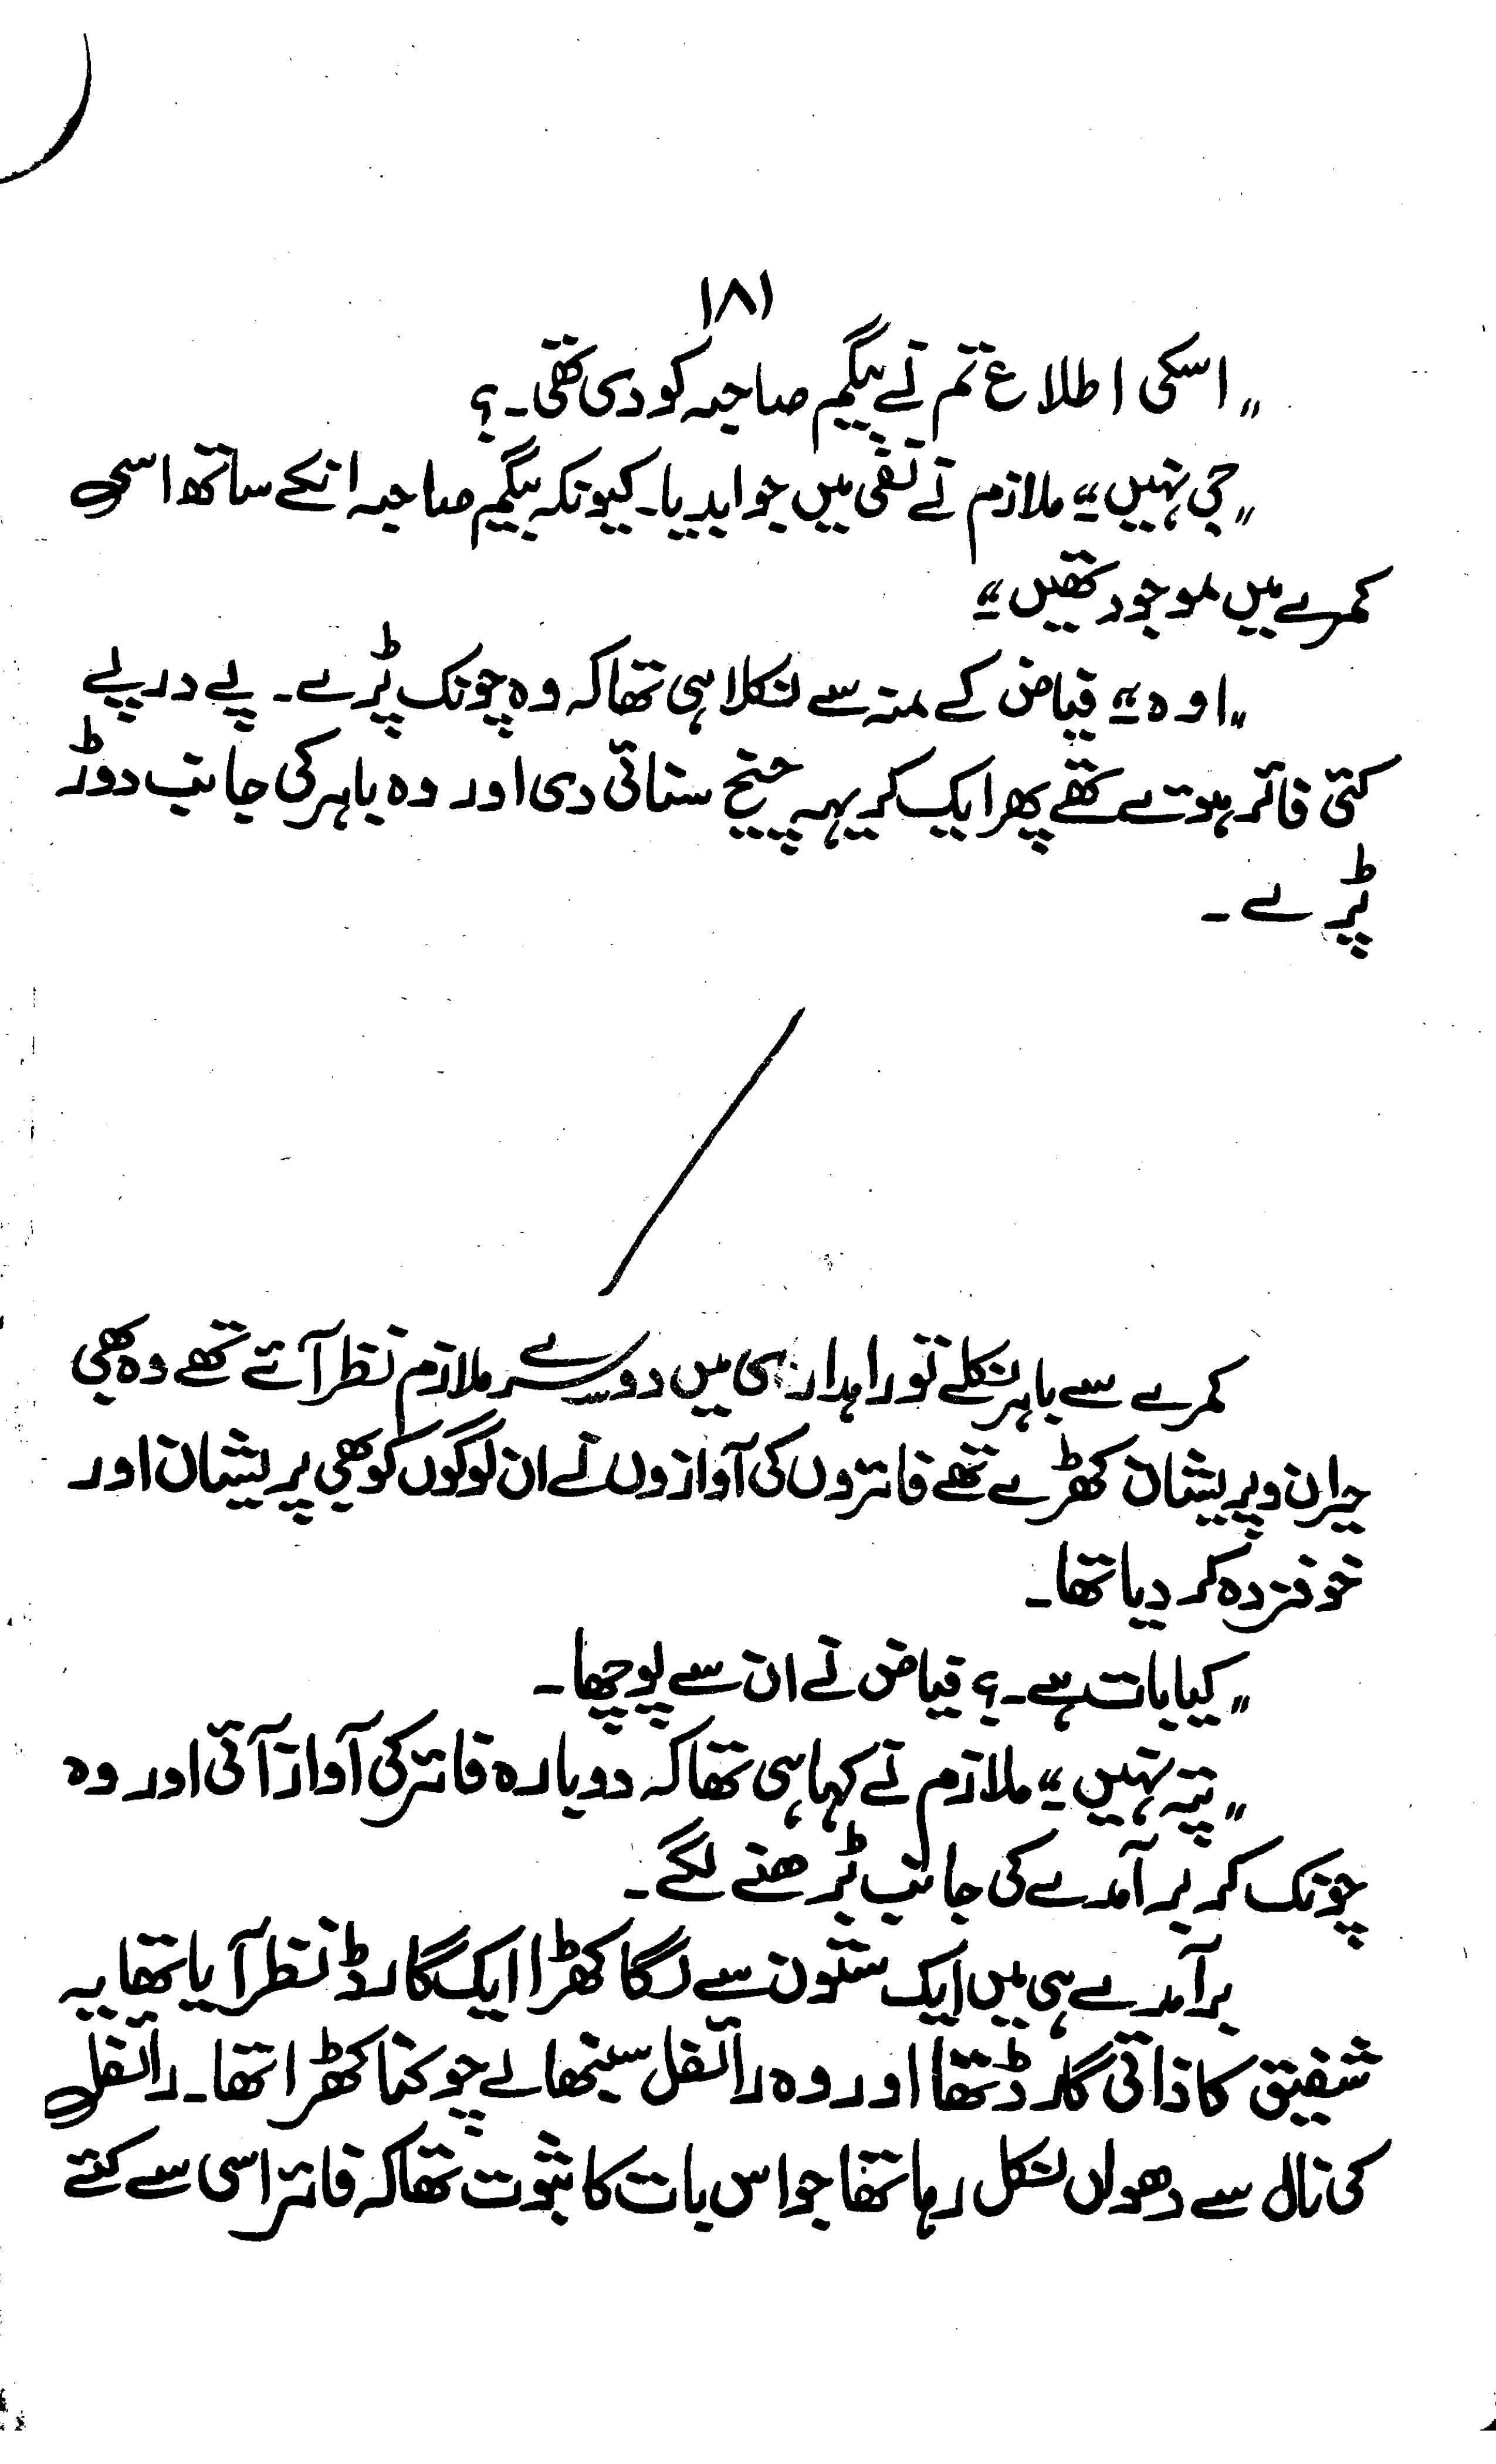 ۱۸۱
"اسکی اطلاع تم نے بیگم صاحبہ کو دی تھی۔؟
"جی نہیں" ملازم نے نفی میں جوابدیا۔ کیونکہ بیگم صاحبہ انکے ساتھ اسی
کمرے میں موجود تھیں"
"اوہ" فیاض کے منہ سے نکلا ہی تھا کہ وہ چونک پڑے۔ پے در پے
کئی فائر ہوئے تھے پھر ایک کریہہ چیخ سنائی دی اور وہ باہر کی جانب دوڑ
پڑے۔
کمرے سے باہر نکلے تو راہداری میں دوسرے ملازم نظر آئے تھے وہ بھی
حیران و پریشان کھڑے تھے فائروں کی آوازوں نے ان لوگوں کو بھی پریشان اور
خوفزدہ کر دیا تھا۔
"کیا بات ہے۔؟ فیاض نے ان سے پوچھا۔
"پتہ نہیں" ملازم نے کہا ہی تھا کہ دوبارہ فائر کی آواز آئی اور وہ
چونک کر برآمدے کی جانب بڑھنے لگے۔
برآمدے ہی میں ایک ستون سے لگا کھڑا ایک گارڈ نظر آیا تھا یہ
شفیق کا ذاتی گارڈ تھا اور وہ رائفل سنبھالے چوکنا کھڑا تھا۔ رائفل
کی نال سے دھواں نکل رہا تھا جو اس بات کا ثبوت تھا کہ فائر اسی سے کئے